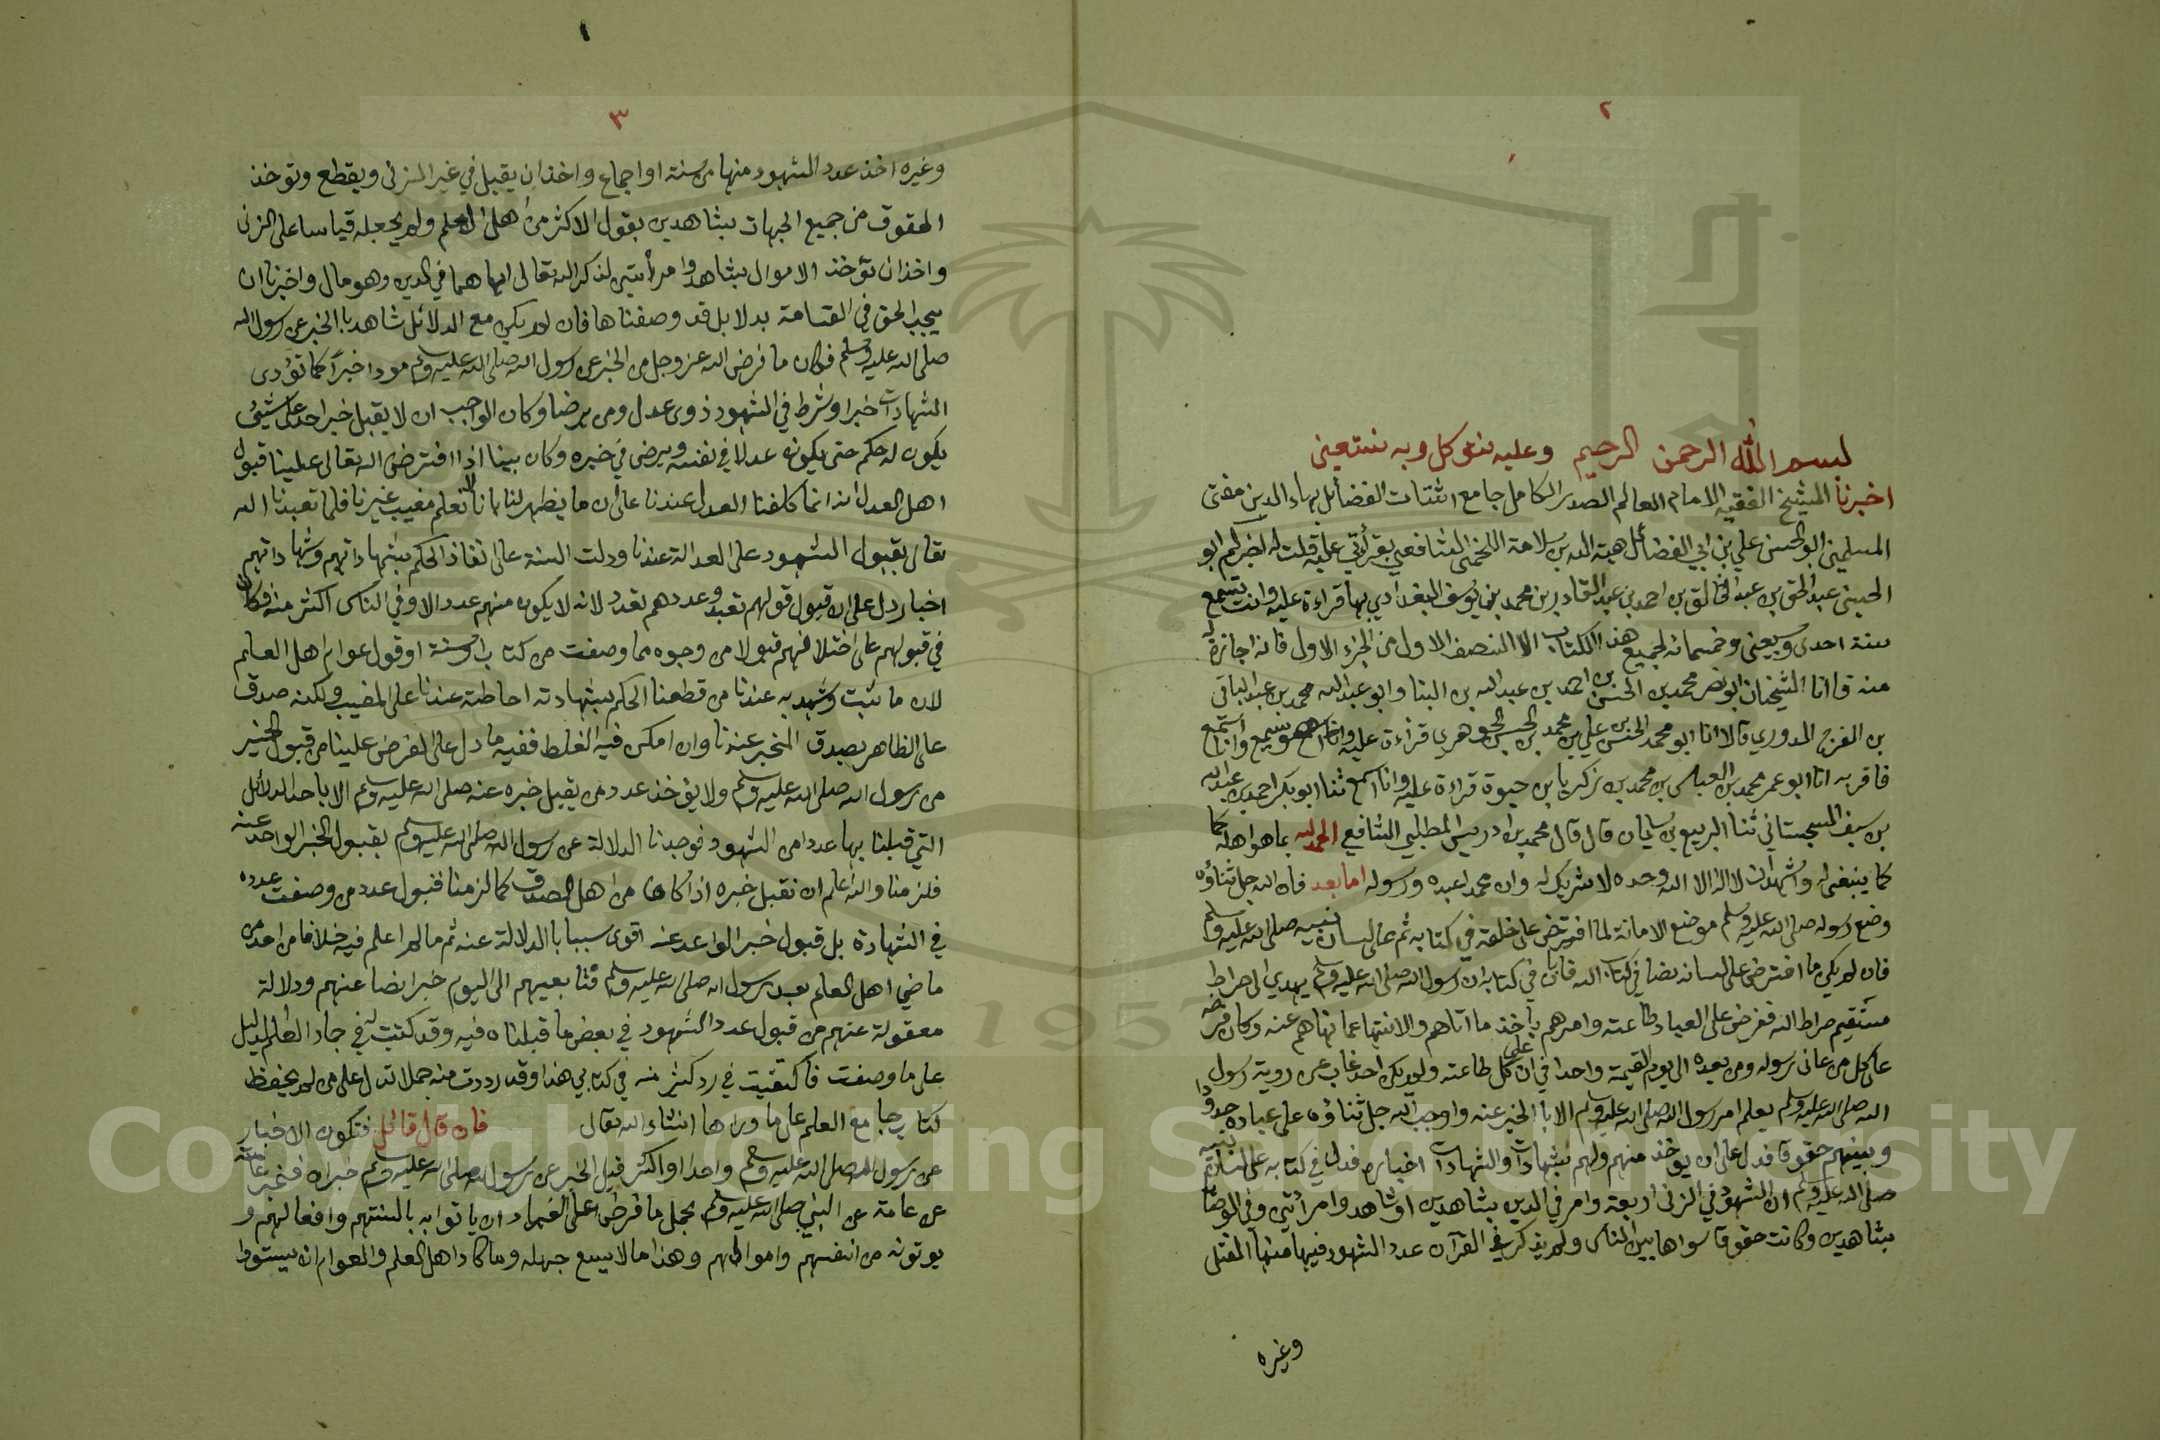 ٢
بسم الله الرحمن الرحيم وعليه نتوكل وبه نستعين
اخبرنا الشيخ الفقيه الامام العالم الصدر الكامل جامع اشتات الفضائل بهاء الدين مفتى
المسلمين ابو الحسن علي بن ابي الفضائل هبة الله بن سلامة اللخمى الشافعي بقرأتي عليه قلت له اخبركم ابو
الحسين عبد الحق بن عبد الخالق بن احمد بن عبد القادر بن محمد بن يوسف البغدادي بها قراءة عليه وانت تسمع
سنة احدى وسبعين وخمسمائه لجميع هذا الكتاب الا النصف الاول من الجزء الاول فانه اجازة له
منه قال انا الشيخان ابو نصر محمد بن الحسن بن احمد بن عبد الله بن البنا وابو عبد الله محمد بن عبد الباقى
بن الفرج الدوري قالا انا ابو محمد الحسن بن علي بن محمد بن الحسن الجوهري قراءة عليه وانا اسمع
فاقر به انا ابو عمر محمد بن العباس بن محمد بن زكريا بن حيوة قراءة عليه وانا اسمع ثنا ابو بكر احمد بن عبد الله
بن سيف السجستاني ثنا الربيع بن سليمان قال قال محمد بن ادريس المطلبي الشافعي الحمد لله بما هو اهله
كما ينبغى له واشهد ان لا اله الا الله وحده لا شريك له وان محمدا عبده ورسوله اما بعد فان الله جل ثناؤه
وضع رسوله صلى الله عليه وسلم موضع الامانة لما افترض على خلقه في كتابه ثم على لسان نبيه صلى الله عليه وسلم
فان لم يكن ما افترض على لسانه نصا في كتاب الله فابان في كتابه ان رسول الله صلى الله عليه وسلم يهدي الى صراط
مستقيم صراط الله ففرض على العباد طاعته وامرهم بأخذ ما اتاهم والانتها عما نهاهم عنه وكان فرضه
على كل من عاين رسوله ومن بعده الى يوم القيمة واحدا في ان على كل طاعته ولم يكن احد غاب عن روية رسول
الله صلى الله عليه وسلم يعلم امر رسول الله صلى الله عليه وسلم الا بالخبر عنه واوجب الله جل ثناؤه على عباده حدودا
وبينهم حقوقا فدل على ان يوخذ منهم ولهم بشهادات والشهادات اخبار فدل في كتابه على لسان نبيه
صلى الله عليه وسلم ان الشهود في الزنى اربعة وامر في الدين بشاهدين او شاهد وامرأتين وفي الوصايا
بشاهدين وكانت حقوقا سواها بين الناس ولم يذكر في القرآن عدد الشهود فيها منها القتل
وغيره
٣
وغيره اخذ عدد الشهود منها من سنة او اجماع واخذ ان يقبل في غير الزنى ويقطع وتوخذ
الحقوق من جميع الجهات بشاهدين بقول الاكثر من اهل العلم ولم يجعله قياسا على الزنى
واخذ ان تؤخذ الاموال بشاهد وامرأتين لذكر الله تعالى اياهما في الدين وهو مال واخبرنا ان
يجب الحق في القسامة بدلايل قد وصفناها فان لم يكن مع الدلائل شاهد بالخبر عن رسول الله
صلى الله عليه وسلم فكان ما فرض الله عز وجل من الخبر عن رسول الله صلى الله عليه وسلم مودا خبرًا كما تؤدى
الشهادات خبرا وشرط في الشهود ذوى عدل ومن يرضا وكان الواجب ان لا يقبل خبر احد على شيئ
يكون له حكم حتى يكون عدلا في نفسه ويرضى في خبره وكان بينا اذا افترض الله تعالى علينا قبول
اهل العدل انه انما كلفنا العدل عندنا على ان ما يظهر لنا لانا لا نعلم مغيب غيرنا فلما تعبدنا الله
تعالى بقبول الشهود على العدالة عندنا ودلت السنة على انفاذ الحكم بشهاداتهم وشهاداتهم
اخبار دل على ان قبول قولهم تعبد وعددهم تعدد لانه لا يكون منهم عدد الا وفي الناس اكثر منه وكان
في قبولهم على اختلافهم قبولا من وجوه مما وصفت من كتاب او سنة او قول عوام اهل العلم
لان ما ثبت وشهد به عندنا من قطعنا الحكم بشهادته احاطته عندنا على المغيب ولكنه صدق
على الظاهر بصدق المخبر عندنا وان امكن فيه الغلط ففيه ما دل على الفرض علينا من قبول الخبر
من رسول الله صلى الله عليه وسلم ولا يؤخذ عدد من يقبل خبره عنه صلى الله عليه وسلم الا باحد الدلائل
التي قبلنا بها عددا من الشهود فوجدنا الدلالة عن رسول الله صلى الله عليه وسلم بقبول الخبر الواحد عنه
فلزمنا والله اعلم ان نقبل خبره اذا كان من اهل الصدق كما لزمنا قبول عدد من وصفت عدده
في الشهادة بل قبول خبر الواحد عنه اقوى سببا بالدلالة عنه ثم ما لم اعلم فيه خلافا من احد من
ماضي اهل العلم بعد رسول الله صلى الله عليه وسلم وتابعيهم الى اليوم خبرا نصا عنهم ودلالة
معقولة عنهم من قبول عدد الشهود في بعض ما قبلناه فيه وقد كتبت له في جاد العلم الدليل
على ما وصفت فاكتفيت في رد كثير منه في كتابي هذا وقد رددت منه جملا تدل على من لم يحفظ
كتاب جامع العلم على ما وراها انشاء الله تعالى فان قال قائل فتكون الاخبار
عن رسول الله صلى الله عليه وسلم واحدا واكثر قيل الخبر عن رسول الله صلى الله عليه وسلم خبران فخبر عامة
عن عامة عن النبي صلى الله عليه وسلم بجمل ما فرض على العباد ان ياتوا به بالسنتهم وافعالهم و
يوتونه من انفسهم واموالهم وهذا ما لا يسع جهله وما كاد اهل العلم والعوام ان يستووا
Copyright © King Saud University
1957